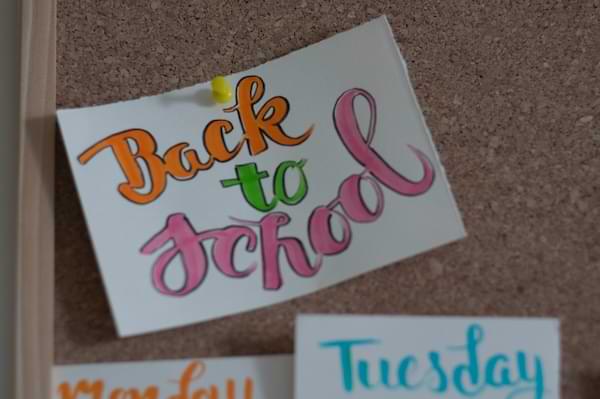 Back
to
School
Monday
Tuesday